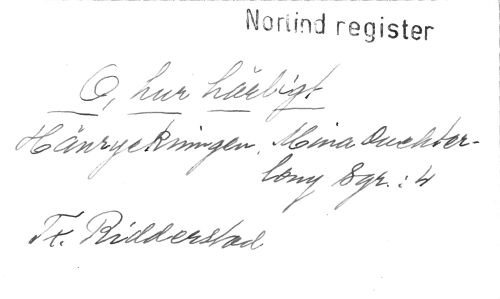 Norlind register
O, hur härligt
Hänryckningen, Mina Ouchter-
lony Sgr. : 4
Tx. Ridderstad